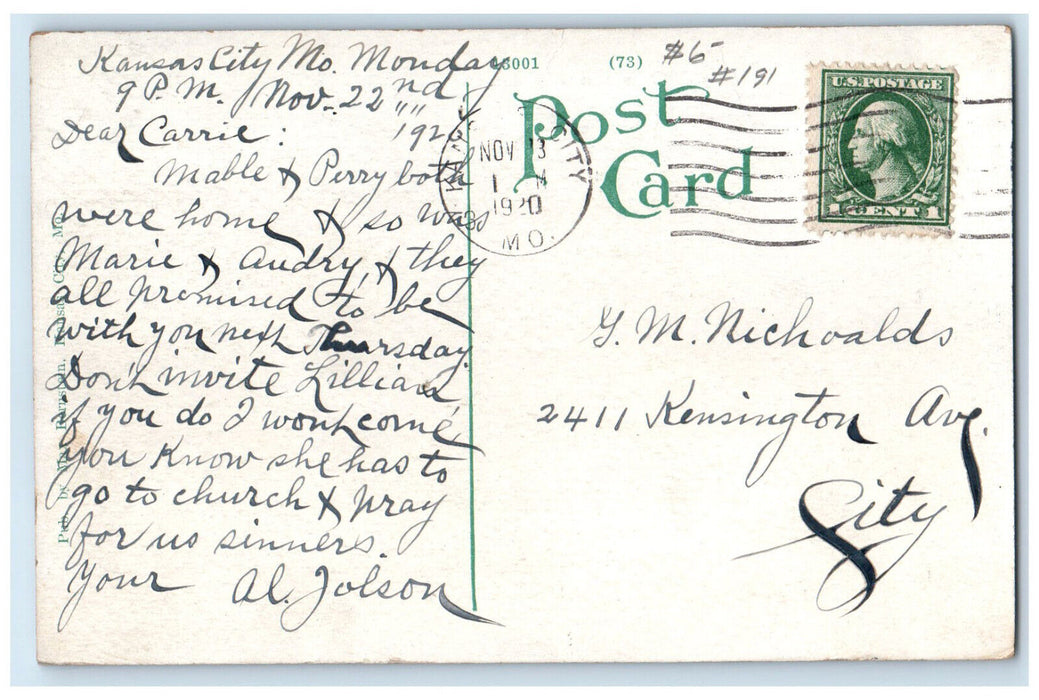 Kansas City Mo. Monday
9 P.M. Nov. 22nd
1920
Dear Carrie:
Mable & Perry both
were home & so was
Marie & Audry, & they
all promised to be
with you next Thursday.
Don't invite Lillian
if you do I wont come,
you know she has to
go to church & pray
for us sinners.
Your Al. Jolson
3001 (73)
#5
#191
POST CARD
CITY
NOV 23
1920
MO.
U.S. POSTAGE
1 CENT 1
G. M. Nichoalds
2411 Kensington Ave.
City
Pub. by Max Bernstein, Kansas City, Mo.